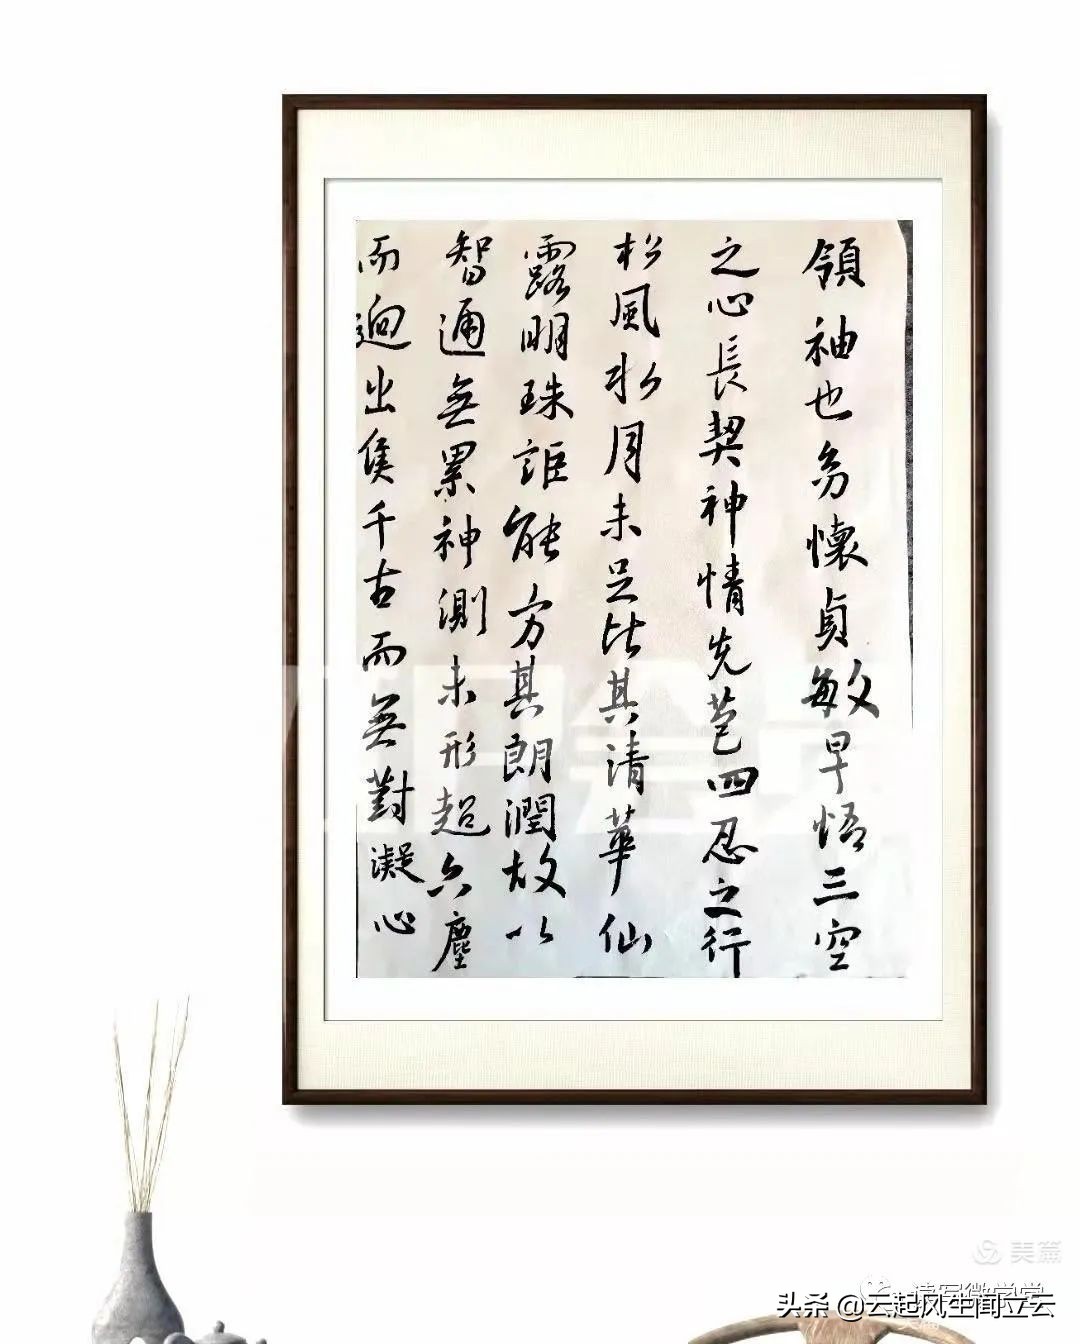 領袖也幼懷貞敏早悟三空
之心長契神情先苞四忍之行
松風水月未足比其清華仙
露明珠詎能方其朗潤故以
智通無累神測未形超六塵
而迥出隻千古而無對凝心
美篇
头条 @云起风生闻立云